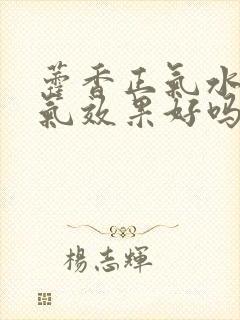 藿香正氣水
氣效果好嗎
楊志輝